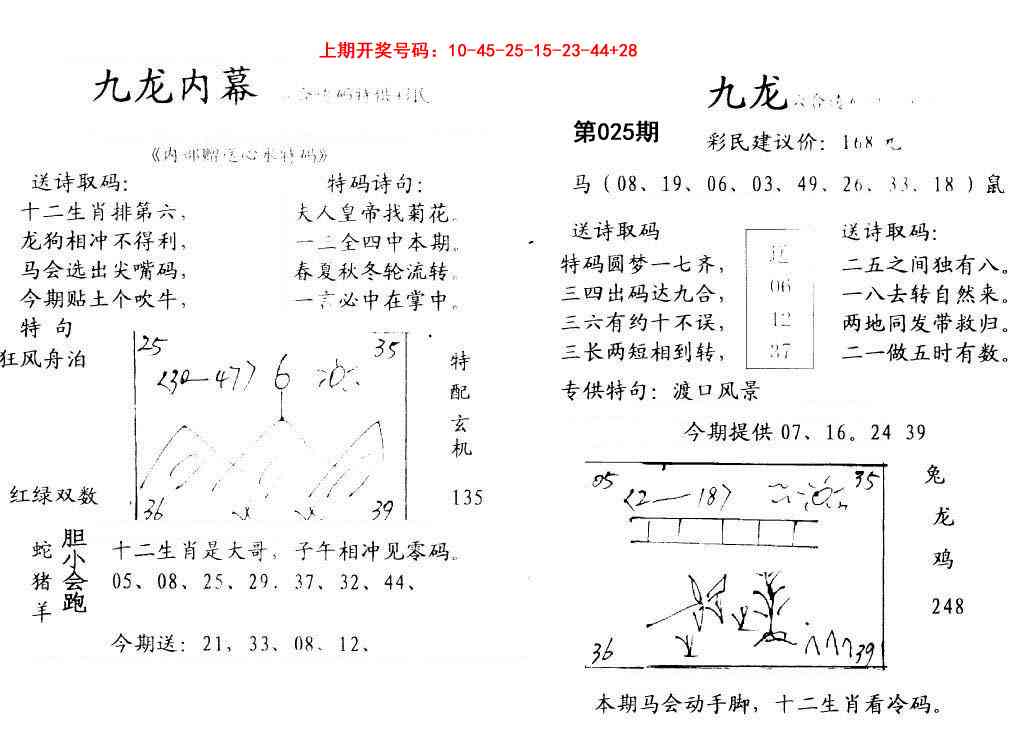 上期开奖号码：10-45-25-15-23-44+28
九龙内幕
送诗取码：
十二生肖排第六，
龙狗相冲不得利，
马会选出尖嘴码，
今期贴土个吹牛，
特码诗句：
夫人皇帝找菊花。
一二全四中本期。
春夏秋冬轮流转。
一言必中在掌中。
特 句
狂风舟泊
红绿双数
25
35
(30—47) 6
36
39
特配玄机
135
蛇猪羊
胆小会跑
十二生肖是大哥，子午相冲见零码。
05、08、25、29、37、32、44、
今期送：21，33、08、12、
九龙
第025期
彩民建议价：168 元
马（08、19、06、03、49、26、33、18 ）鼠
送诗取码
特码圆梦一七齐，
三四出码达九合，
三六有约十不误，
三长两短相到转，
06
12
37
送诗取码：
二五之间独有八。
一八去转自然来。
两地同发带救归。
二一做五时有数。
专供特句：渡口风景
今期提供 07、16。24 39
05
35
(2—18)
36
39
兔
龙
鸡
248
本期马会动手脚，十二生肖看冷码。